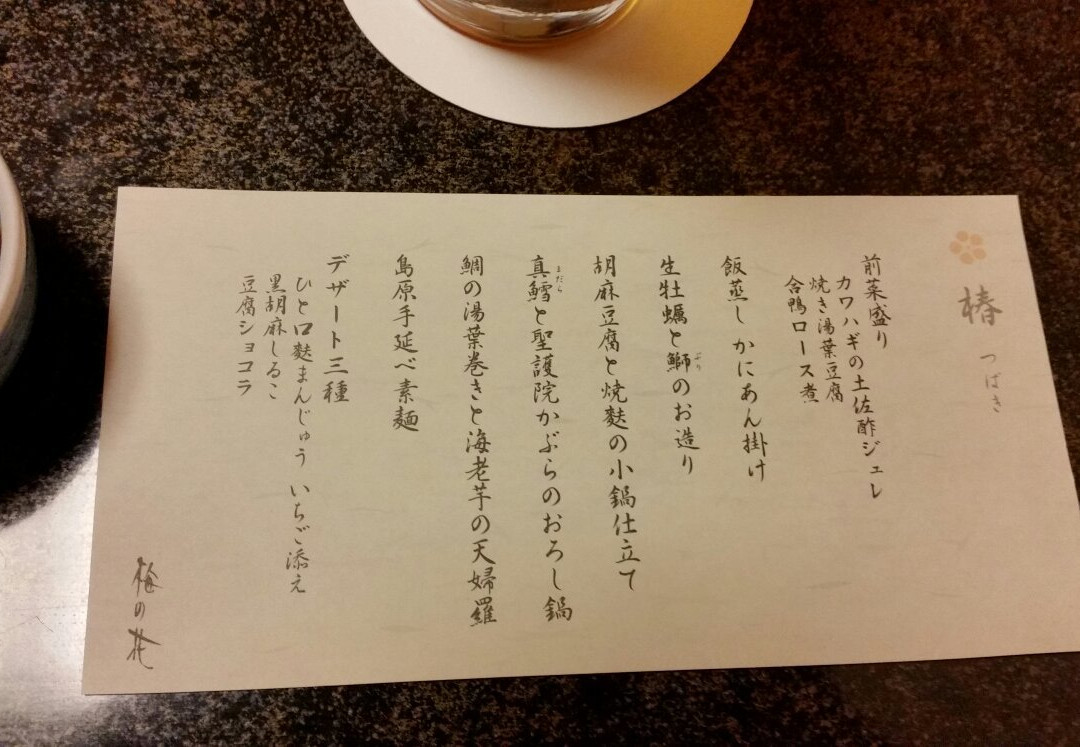 椿 つばき
前菜盛り
カワハギの土佐酢ジュレ
焼き湯葉豆腐
合鴨ロース煮
飯蒸し かにあん掛け
生牡蠣と鰤のお造り
ぶり
胡麻豆腐と焼麩の小鍋仕立て
真鱈と聖護院かぶらのおろし鍋
まだら
鯛の湯葉巻きと海老芋の天婦羅
島原手延べ素麺
デザート三種
ひと口麩まんじゅう いちご添え
黒胡麻しるこ
豆腐ショコラ
梅の花